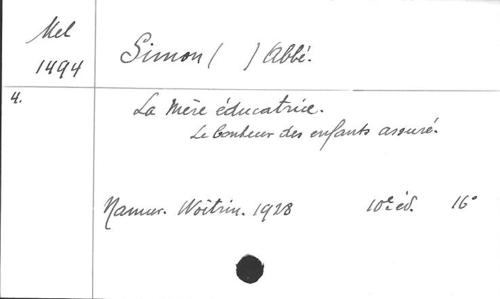 Mel
1494
Simon ( ) Abbé.
4.
La Mère éducatrice.
Le bonheur des enfants assuré.
Namur. Woitrin. 1928 10e éd. 16°